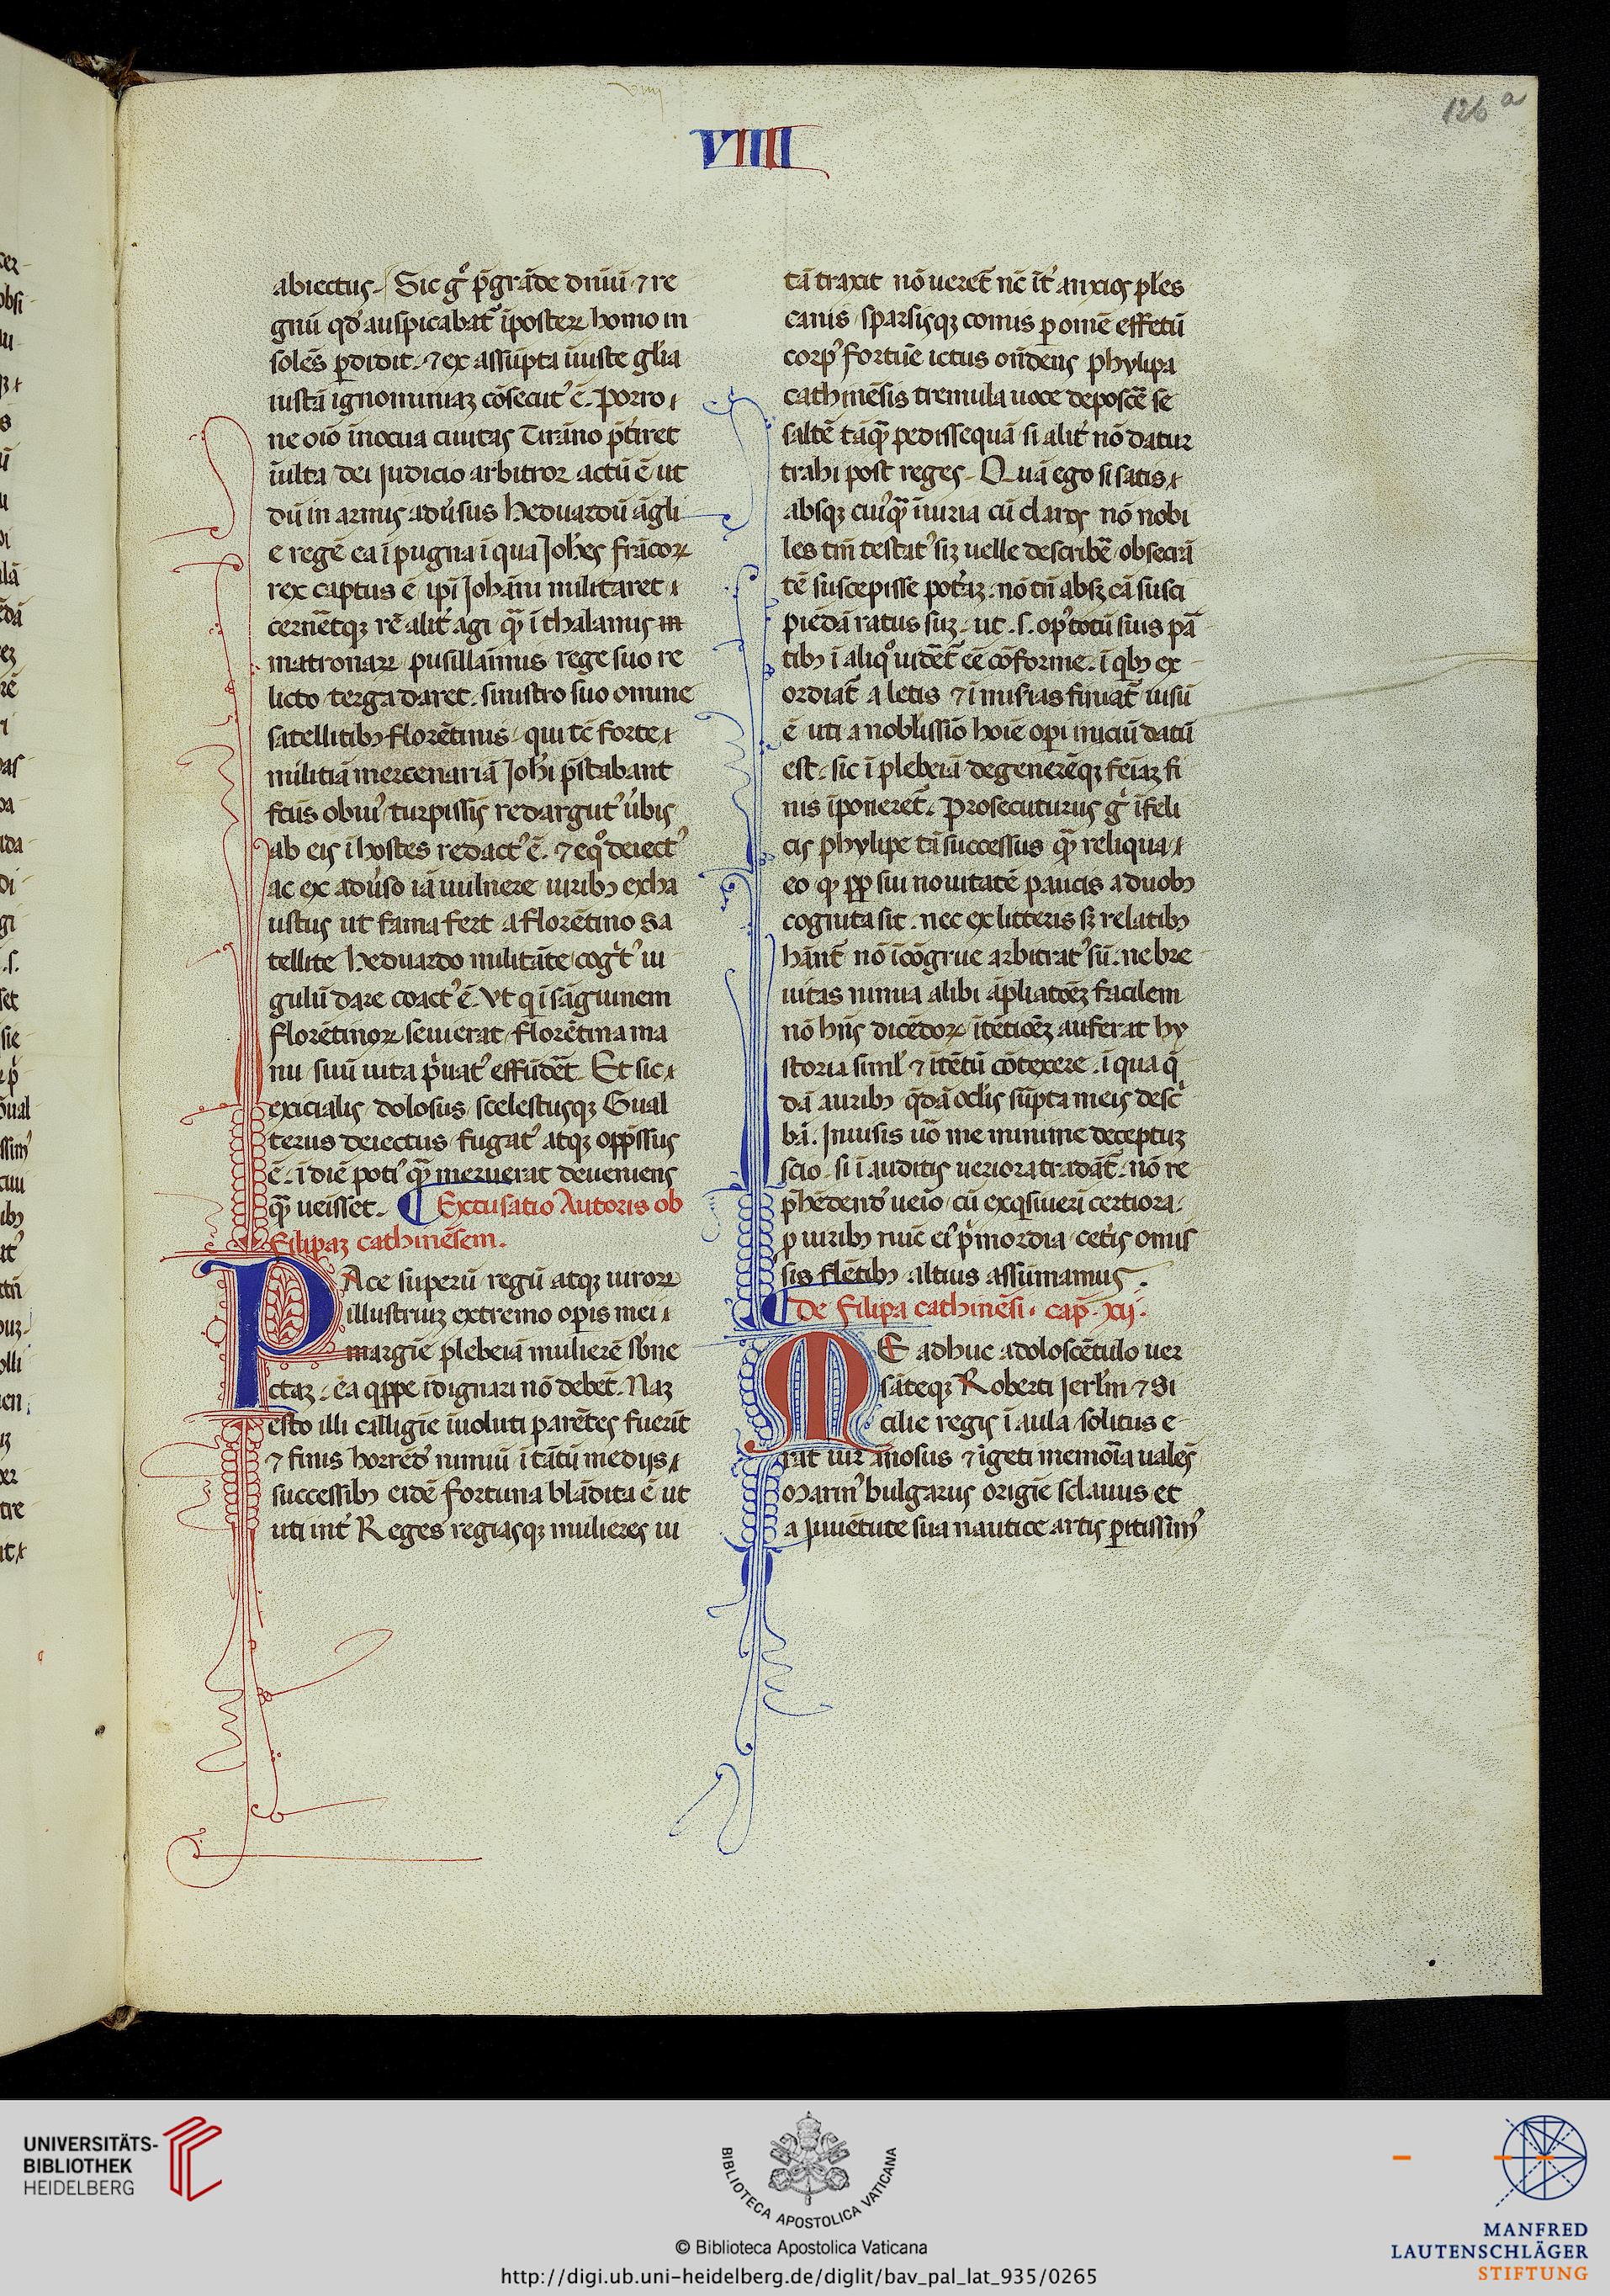 VIIII
126 a
abiectus. Sic gͦ p̄grāde dn̄iū ⁊ re
gnū qd̓ auspicabat᷑ ī posteꝝ homo in
solēs ꝑdidit. ⁊ ex assūpta īiuste gl̓ia
iustā ignominiaꝫ cōsecut᷒ ē. Porro
ne oīo īnocua ciuitas Tirāno p̄tiret
īulta dei judicio arbitror actū ē ut
dū in armis adūsus heduardū āgli
e regē ea ī pugna ī qua Joh̓es frācoꝝ
rex captus ē ip̄i Johāni militaret
cernētqꝫ rē alit̓ agi qᷓꝫ ī thalamis
matronaꝝ pusillaīmis rege suo re
licto terga daret. sinistro suo omine
satellitibꝫ florētinis qui tē forte
militiā mercenariā Joh̓i p̄stabant
fc̄us obui᷒ turpissis redargut᷒ v̓bis
ab eis ī hostes redact᷒ ē. ⁊ eqͦ deiect᷒
ac ex adūso iā uulnere uiribꝫ exha
ustus ut fama fert a florētino sa
tellite heduardo militāte cogͥt᷒ iu
gulū dare coact᷒ ē. Vt q ī sāguinem
florētinoꝝ seuierat florētina ma
nu suū uita p̓uat᷒ effūdēt. Et sic
exicialis dolosus scelestusqꝫ Gual
terus deiectus fugat᷒ atqꝫ opp̄ssus
ē. ī diē poti᷒ qᷓꝫ meruerat deueniens
qᷓꝫ ueisset. ¶ Excusatio Autoris ob
Filipaꝫ cathinēsem.
PAce superū regū atqꝫ uiroꝝ
illustriuꝫ extremo oꝑis mei
margīe plebeiā mulierē s̓bne
ctaꝫ. ea qꝑpe īdignari nō debēt. Naꝫ
esto illi calligīe īuoluti parētes fuerīt
⁊ finis horrēd᷒ nimiū ī tātū medijs
successibꝫ eidē fortuna blādita ē ut
uti int̓ Reges regiasqꝫ mulieres ui
tā traxit nō ueret᷑ nē īt̓ anxios ples
canis sparsisqꝫ comis ꝑ omē effetū
corp᷒ fortūe ictus on̄dens phylipa
cathinēsis tremula uoce deposcē se
saltē tāqᷓꝫ pedissequā si alit̓ nō datur
trahi post reges. Quā ego si satis
absqꝫ cui᷒qᷓꝫ īiuria cū claros nō nobi
les tm̄ testat᷒ siꝫ uelle describē obsecrā
tē suscepisse pot̓aꝫ. nō tn̄ absꝫ cā susci
piēdā ratus suꝫ. ut .s. op᷒ totū suis pᷓ
tibꝫ ī aliqͦ uidēt᷑ eē cōforme. ī qbꝫ ex
ordiāt᷑ a letis ⁊ ī mis̓ias finiāt᷑ uisū
ē uti a nobilissīo hoīe oꝑi iniciū datū
est. sic ī plebeiā degenerēqꝫ feīaꝫ fi
nis īponeret᷑. Prosecuturus gͦ īfeli
cis phylipe tā successus qᷓꝫ reliqua
eo qꝫ ꝓp̄ sui nouitatē paucis aduobꝫ
cognita sit. nec ex litteris sꝫ relatibꝫ
hānt᷑ nō īcōgrue arbitrat᷒ sū. ne bre
uitas nimia alibi āpliatōeꝫ facilem
nō hn̄s dicēdoꝝ ītētiōeꝫ auferat hy
storia siml̓ ⁊ ītētū cōtexere. ī qua q̄
dā auribꝫ q̄dā oclis sūpta meis desc̓
bā. In uisis u̓o me minime deceptuꝫ
scio. si ī auditis ueriora tradāt᷑. nō re
p̓hēdend᷒ ueio cū exqsiueri certiora.
ꝓ uiribꝫ nūc ei᷒ p̓mordia cet̓is omis
sis flētibꝫ altius assūmamus.
¶ De Filipa cathinēsi. cap̄. xij.
ME adhuc adoloscētulo uer
sāteqꝫ Roberti Jerl̓m ⁊ Si
cilie regis ī aula solitus e
rat uir ānosus ⁊ īgēti memoīa ualēs
Marin᷒ bulgarus origīe sclauus et
a juuētute sua nautice artis ꝑitissim᷒
UNIVERSITÄTS-
BIBLIOTHEK
HEIDELBERG
BIBLIOTECA APOSTOLICA VATICANA
© Biblioteca Apostolica Vaticana
http://digi.ub.uni-heidelberg.de/diglit/bav_pal_lat_935/0265
MANFRED
LAUTENSCHLÄGER
STIFTUNG